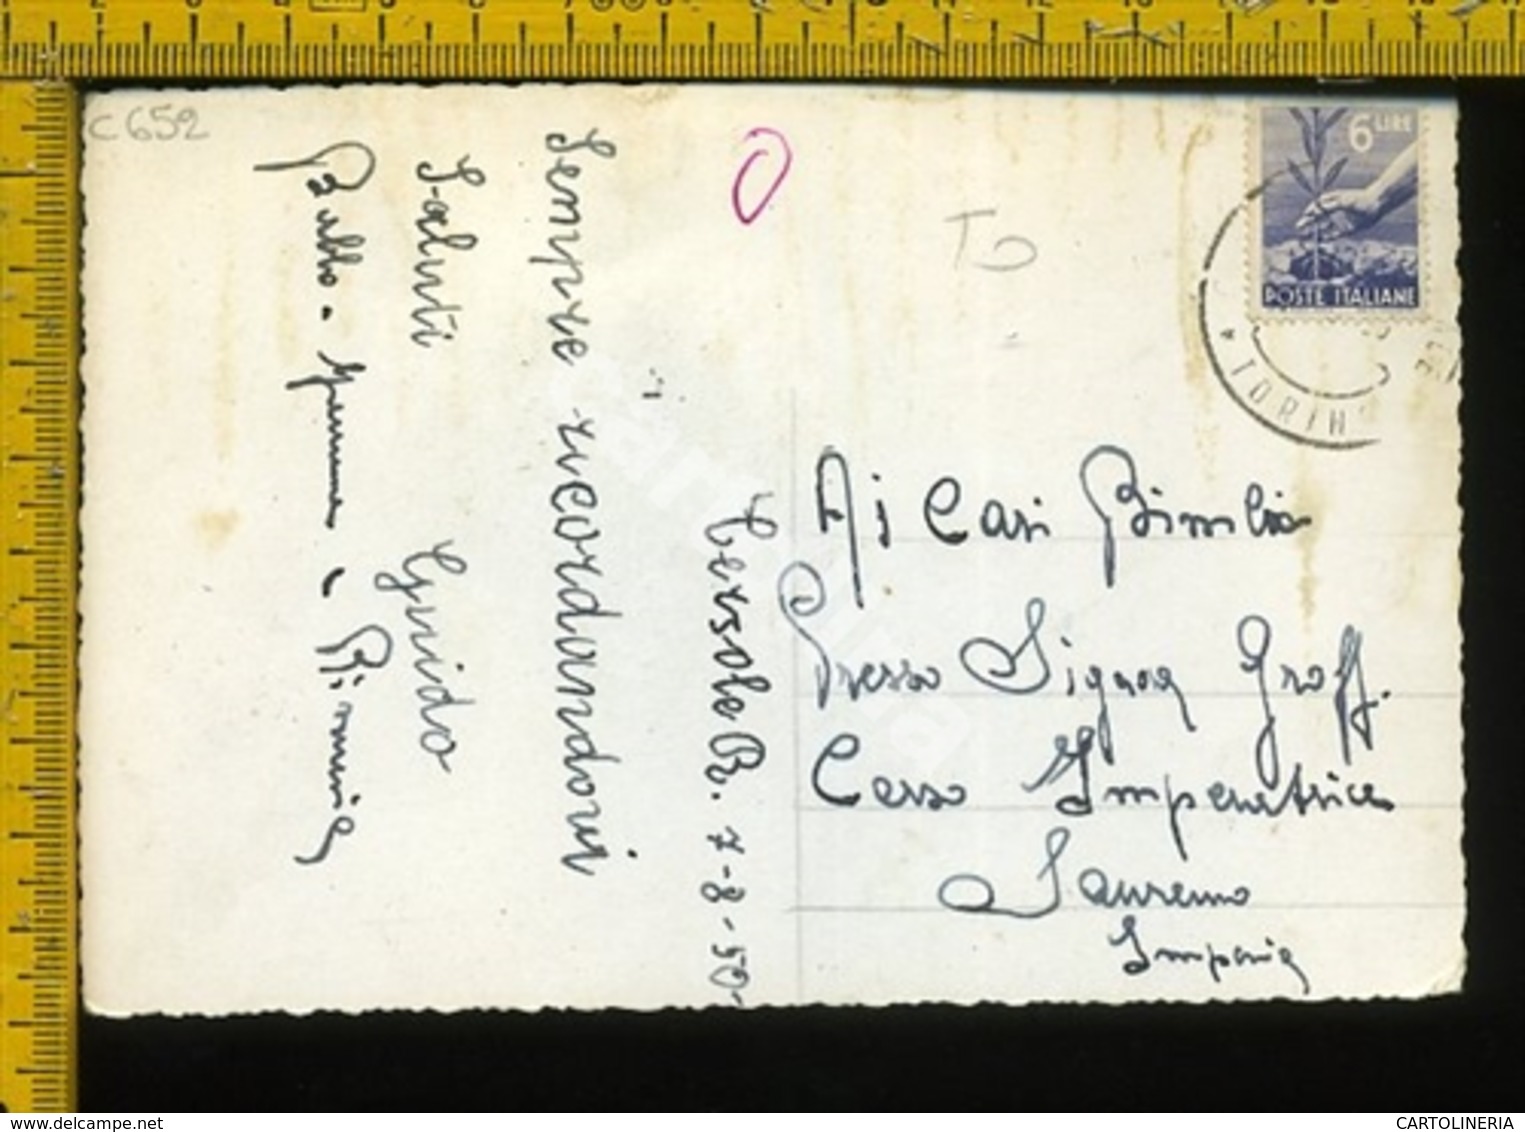 C 652
O
TO
6 LIRE
POSTE ITALIANE
TORIN
Cersole R. 7-8-50
Sempre ricordandovi
Saluti Guido
Babbo - e Pierina
Ai Cari Bimbi
Presso Signora Groff.
Corso Imperatrice
Sanremo
Imperia
www.delcampe.net
CARTOLINERIA